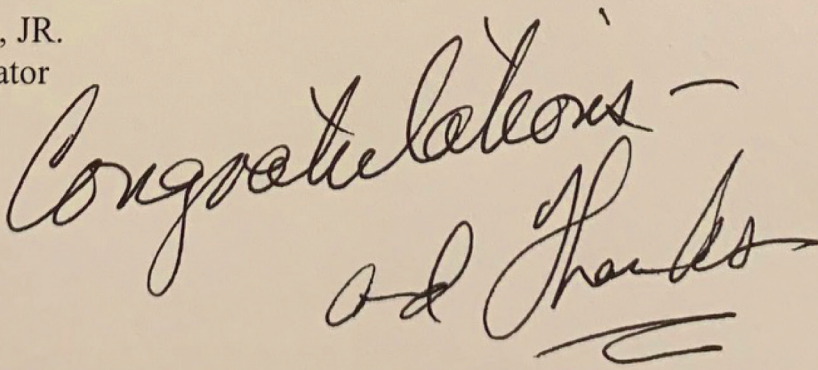 , JR.
ator
Congratulations –
and Thanks